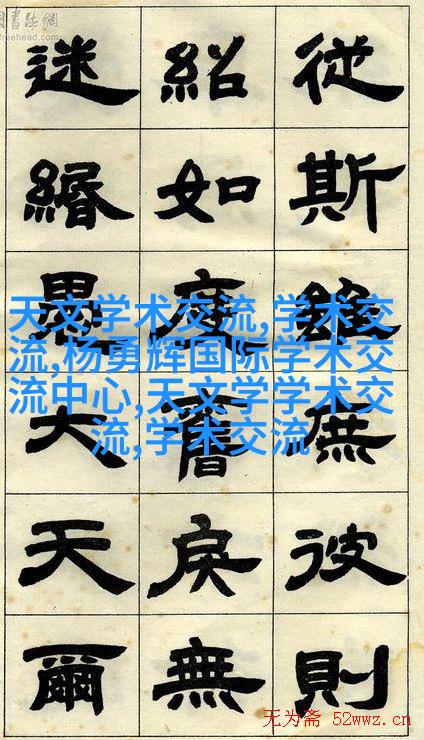 書法網
freehead.com
從斯彼則
紹如舊戾無
迷緡墨大天爾
天文学术交流,学术交
流,杨勇辉国际学术交
流中心,天文学学术交
流,学术交流
无为斋 52wwz.cn